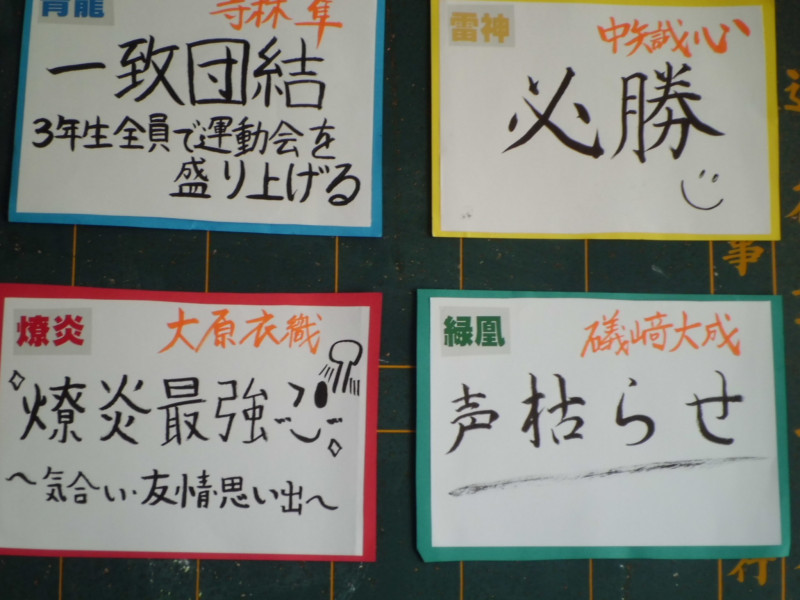 青龍
寺林 隼
一致団結
3年生全員で運動会を
盛り上げる
雷神
中矢誠心
必勝
燎炎
大原衣織
燎炎最強
〜気合い・友情・思い出〜
緑凰
礒﨑大成
声枯らせ
事
行